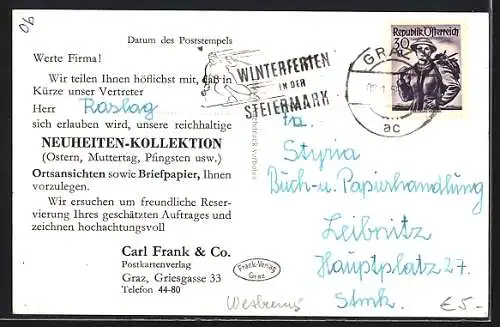 90
Datum des Poststempels
Werte Firma!
Wir teilen Ihnen höflichst mit, daß in
Kürze unser Vertreter
Herr Raslag
sich erlauben wird, unsere reichhaltige
NEUHEITEN-KOLLEKTION
(Ostern, Muttertag, Pfingsten usw.)
Ortsansichten sowie Briefpapier, Ihnen
vorzulegen.
Wir ersuchen um freundliche Reser-
vierung Ihres geschätzten Auftrages und
zeichnen hochachtungsvoll
Carl Frank & Co.
Postkartenverlag
Graz, Griesgasse 33
Telefon 44-80
Frank-Verlag
Graz
WINTERFERIEN
IN DER
STEIERMARK
GRAZ
ac
Republik Österreich
30
Fa.
Styria
Buch- u. Papierhandlung
Leibnitz
Hauptplatz 27.
Stmk.
€ 5.-